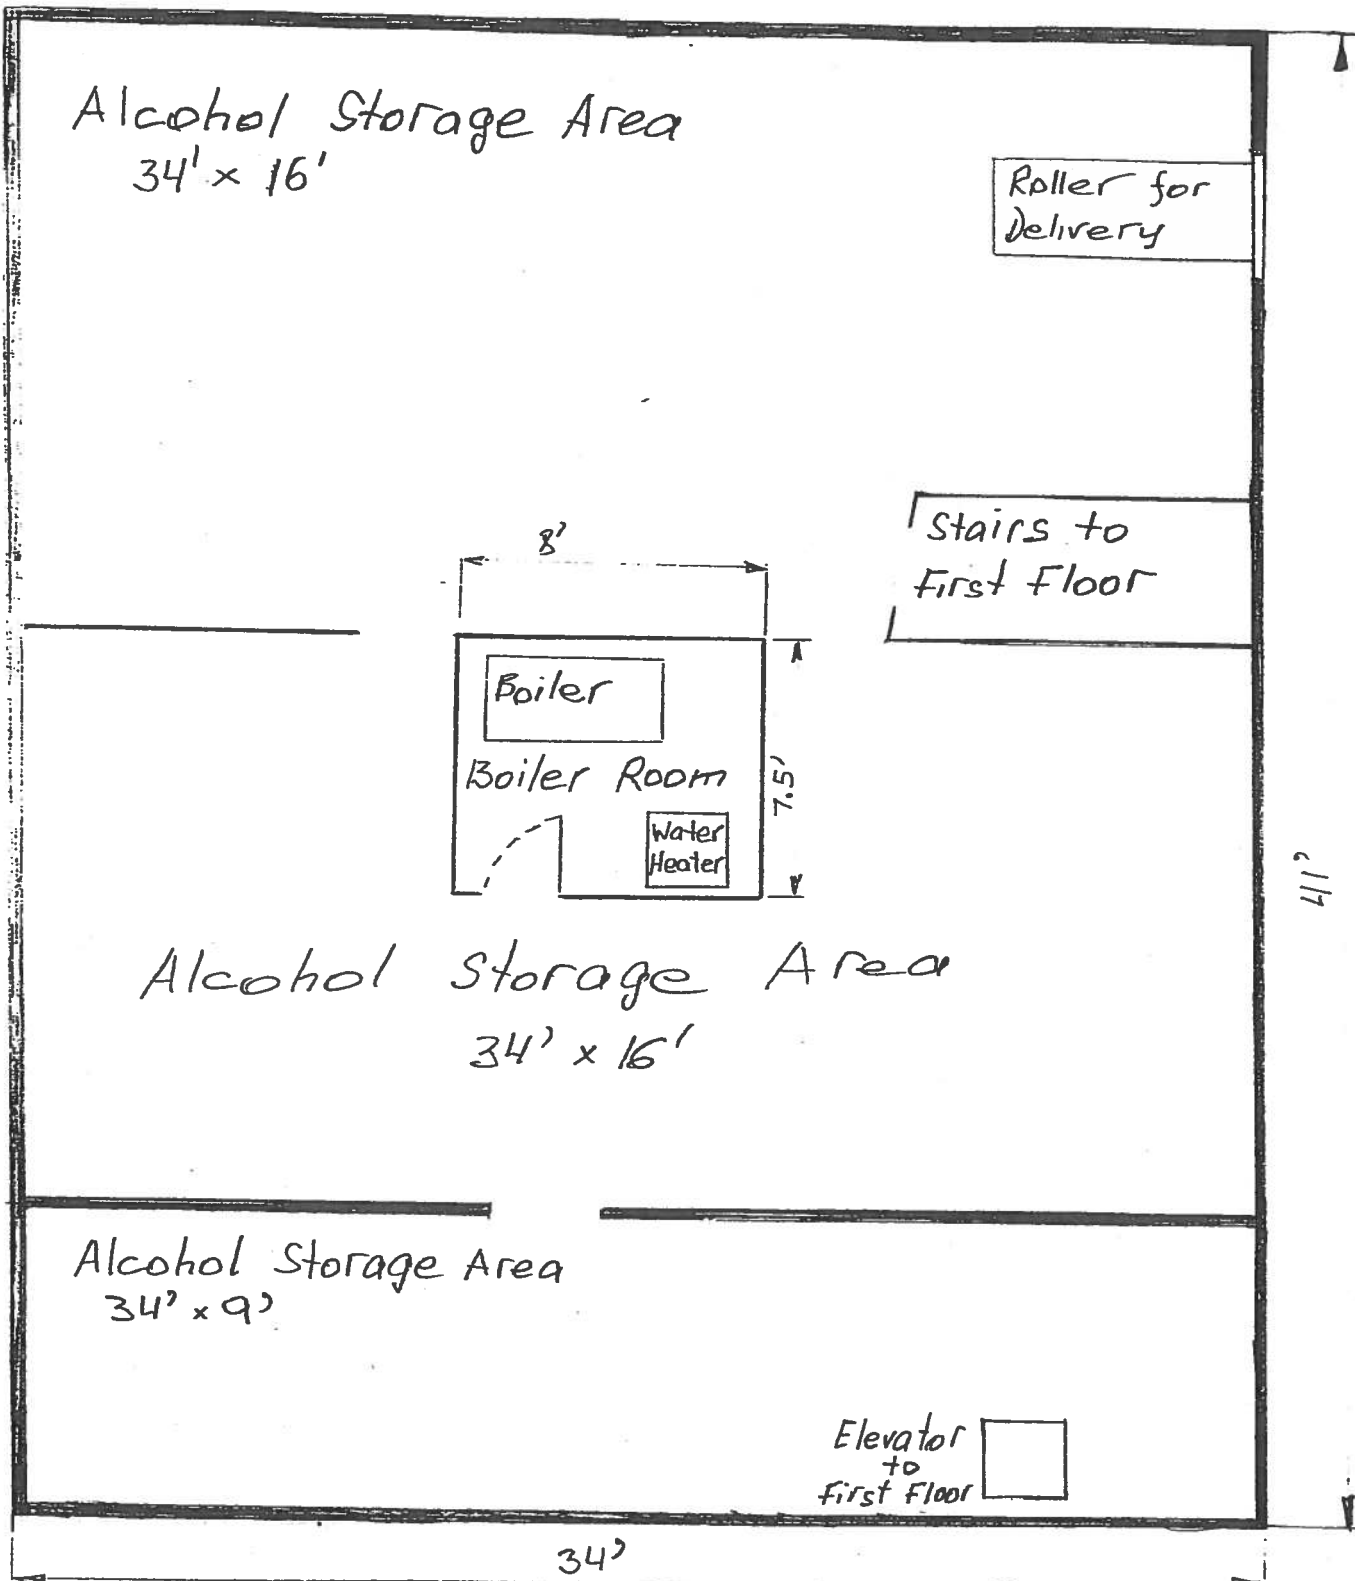 Alcohol Storage Area
34' x 16'
Roller for
Delivery
8'
Stairs to
First Floor
Boiler
Boiler Room
7.5'
Water
Heater
41'
Alcohol Storage Area
34' x 16'
Alcohol Storage Area
34' x 9'
Elevator
to
First Floor
34'